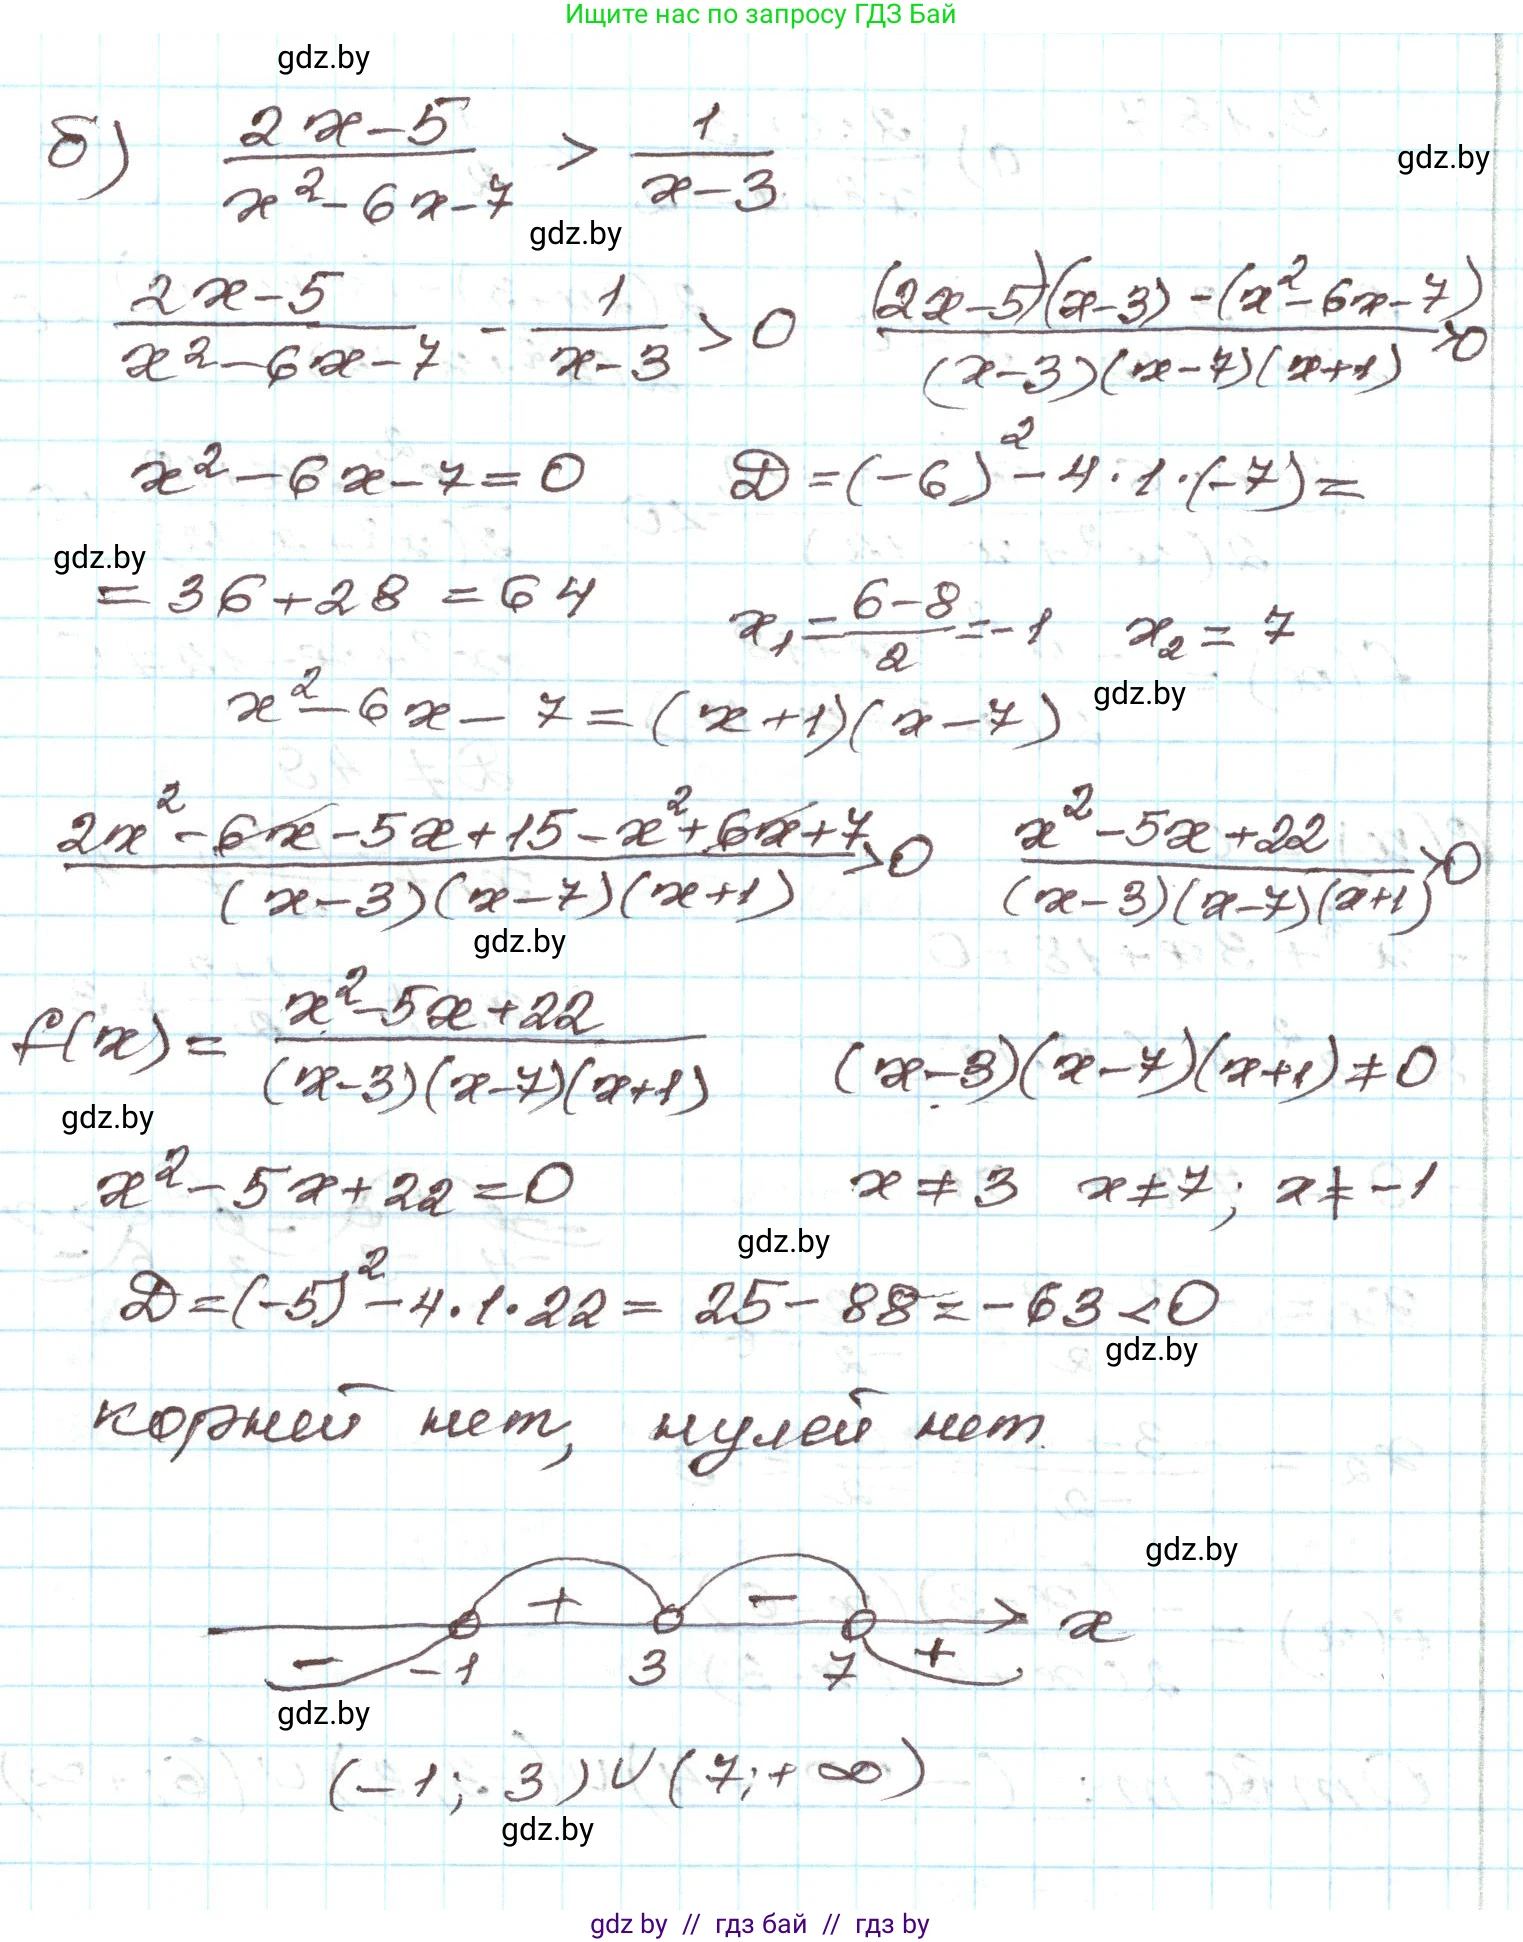 Ищите нас по запросу ГДЗ Бай
gdz.by
б) (2x-5)/(x²-6x-7) > 1/(x-3)
gdz.by
gdz.by
(2x-5)/(x²-6x-7) - 1/(x-3) > 0   ((2x-5)(x-3)-(x²-6x-7))/((x-3)(x-7)(x+1)) > 0
x²-6x-7=0   D=(-6)²-4·1·(-7)=
gdz.by
=36+28=64   x₁=(6-8)/2=-1   x₂=7
gdz.by
x²-6x-7=(x+1)(x-7)
(2x²-6x-5x+15-x²+6x+7)/((x-3)(x-7)(x+1)) > 0   (x²-5x+22)/((x-3)(x-7)(x+1)) > 0
gdz.by
f(x)=(x²-5x+22)/((x-3)(x-7)(x+1))   (x-3)(x-7)(x+1)≠0
gdz.by
x²-5x+22=0   x≠3 x≠7; x≠-1
gdz.by
D=(-5)²-4·1·22=25-88=-63<0
gdz.by
корней нет, нулей нет.
gdz.by
+ - x
- -1 3 7 +
gdz.by
(-1; 3)∪(7;+∞)
gdz.by
gdz by // гдз бай // гдз by